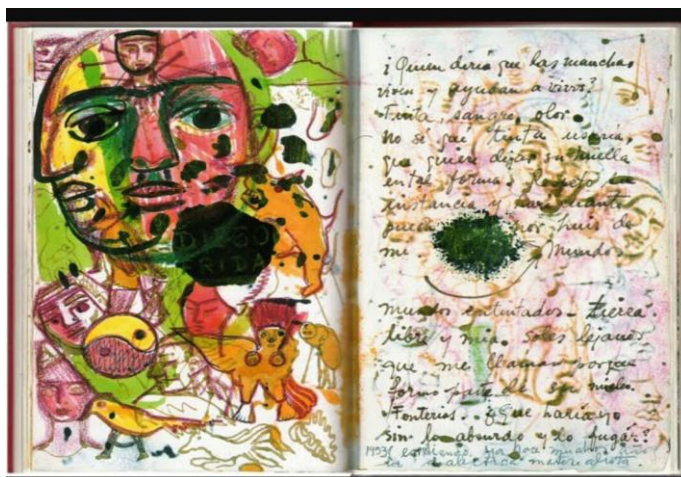 DIEGO
FRIDA
¿Quien diria que las manchas
viven y ayudan a vivir?
Tinta, sangre, olor.
No sé qué tinta usaria,
que quiere dejar su huella
entre forma. Respeto
instancia y haré cuanto
pueda por huir de
mi Mundos
mundos entintados - tierra
libre y mia. Soles lejanos
que me llaman porque
formo parte de su nucleo.
Tonterias.. ¿Que haria yo
sin lo absurdo y lo fugáz?
1953 entiendo ya hace muchos años
la dialectica materialista.